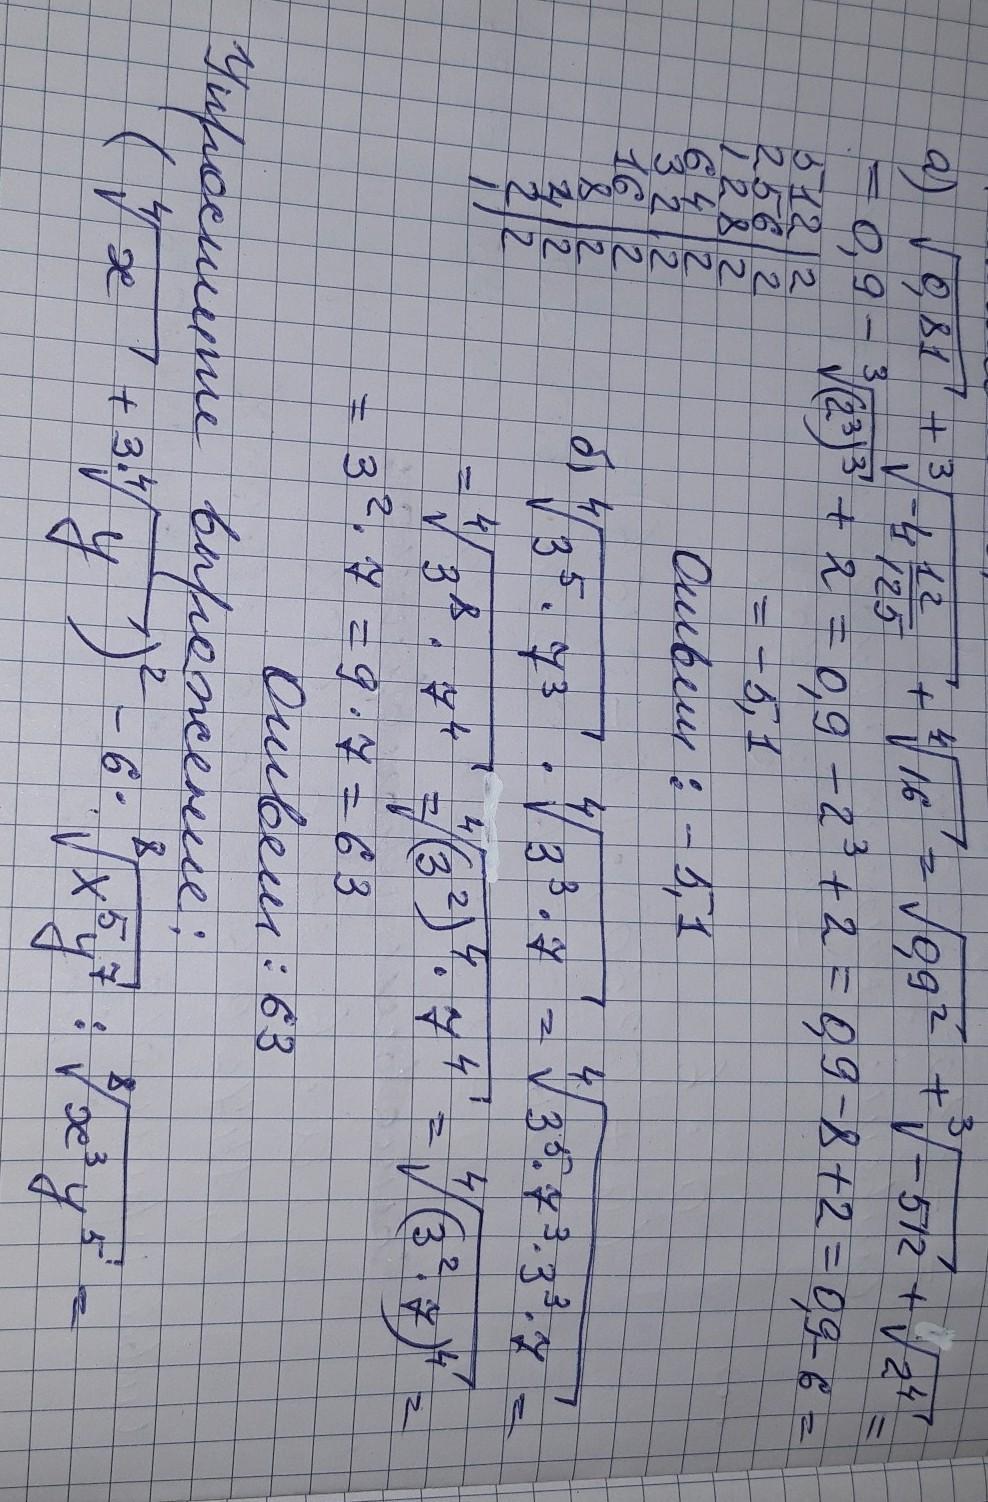 а) √0,81 + ³√-4 12/125 + ⁴√16 = √0,9² + ³√-512 + √2⁴ =
= 0,9 - ³√(2³)³ + 2 = 0,9 - 2³ + 2 = 0,9 - 8 + 2 = 0,9 - 6 =
= -5,1
512|2
256|2
128|2
64|2
32|2
16|2
8|2
4|2
2|2
1|
Ответ: -5,1
б) ⁴√3⁵·7³ · ⁴√3³·7 = ⁴√3⁵·7³·3³·7 =
= ⁴√3⁸·7⁴ = ⁴√(3²)⁴·7⁴ = ⁴√(3²·7)⁴ =
= 3²·7 = 9·7 = 63
Ответ: 63
Упростите выражение:
(⁴√x + 3·⁴√y)² - 6·⁸√x⁵y⁷ : ⁸√x³y⁵ =